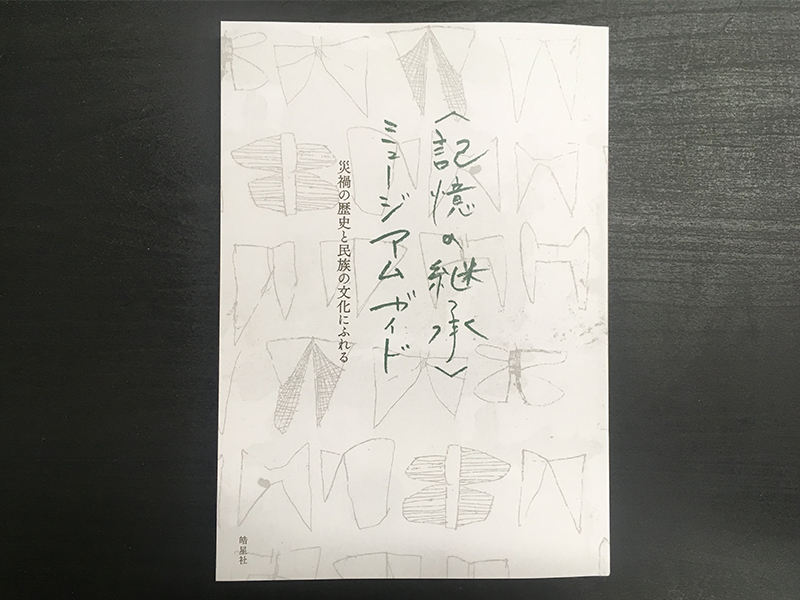 〈記憶の継承〉
ミュージアムガイド
災禍の歴史と民族の文化にふれる
皓星社